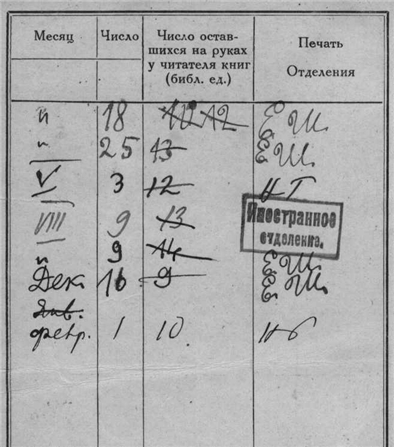 Месяц Число Число остав-
шихся на руках
у читателя книг
(библ. ед.) Печать
Отделения
" 18 10 12 ЕШ
" 25 13 ЕШ
V 3 12 НТ
VIII 9 13
Иностранное
отделение.
" 9 14 ЕШ
Дек 16 9 ЕШ
Янв.
февр. 1 10 Нб